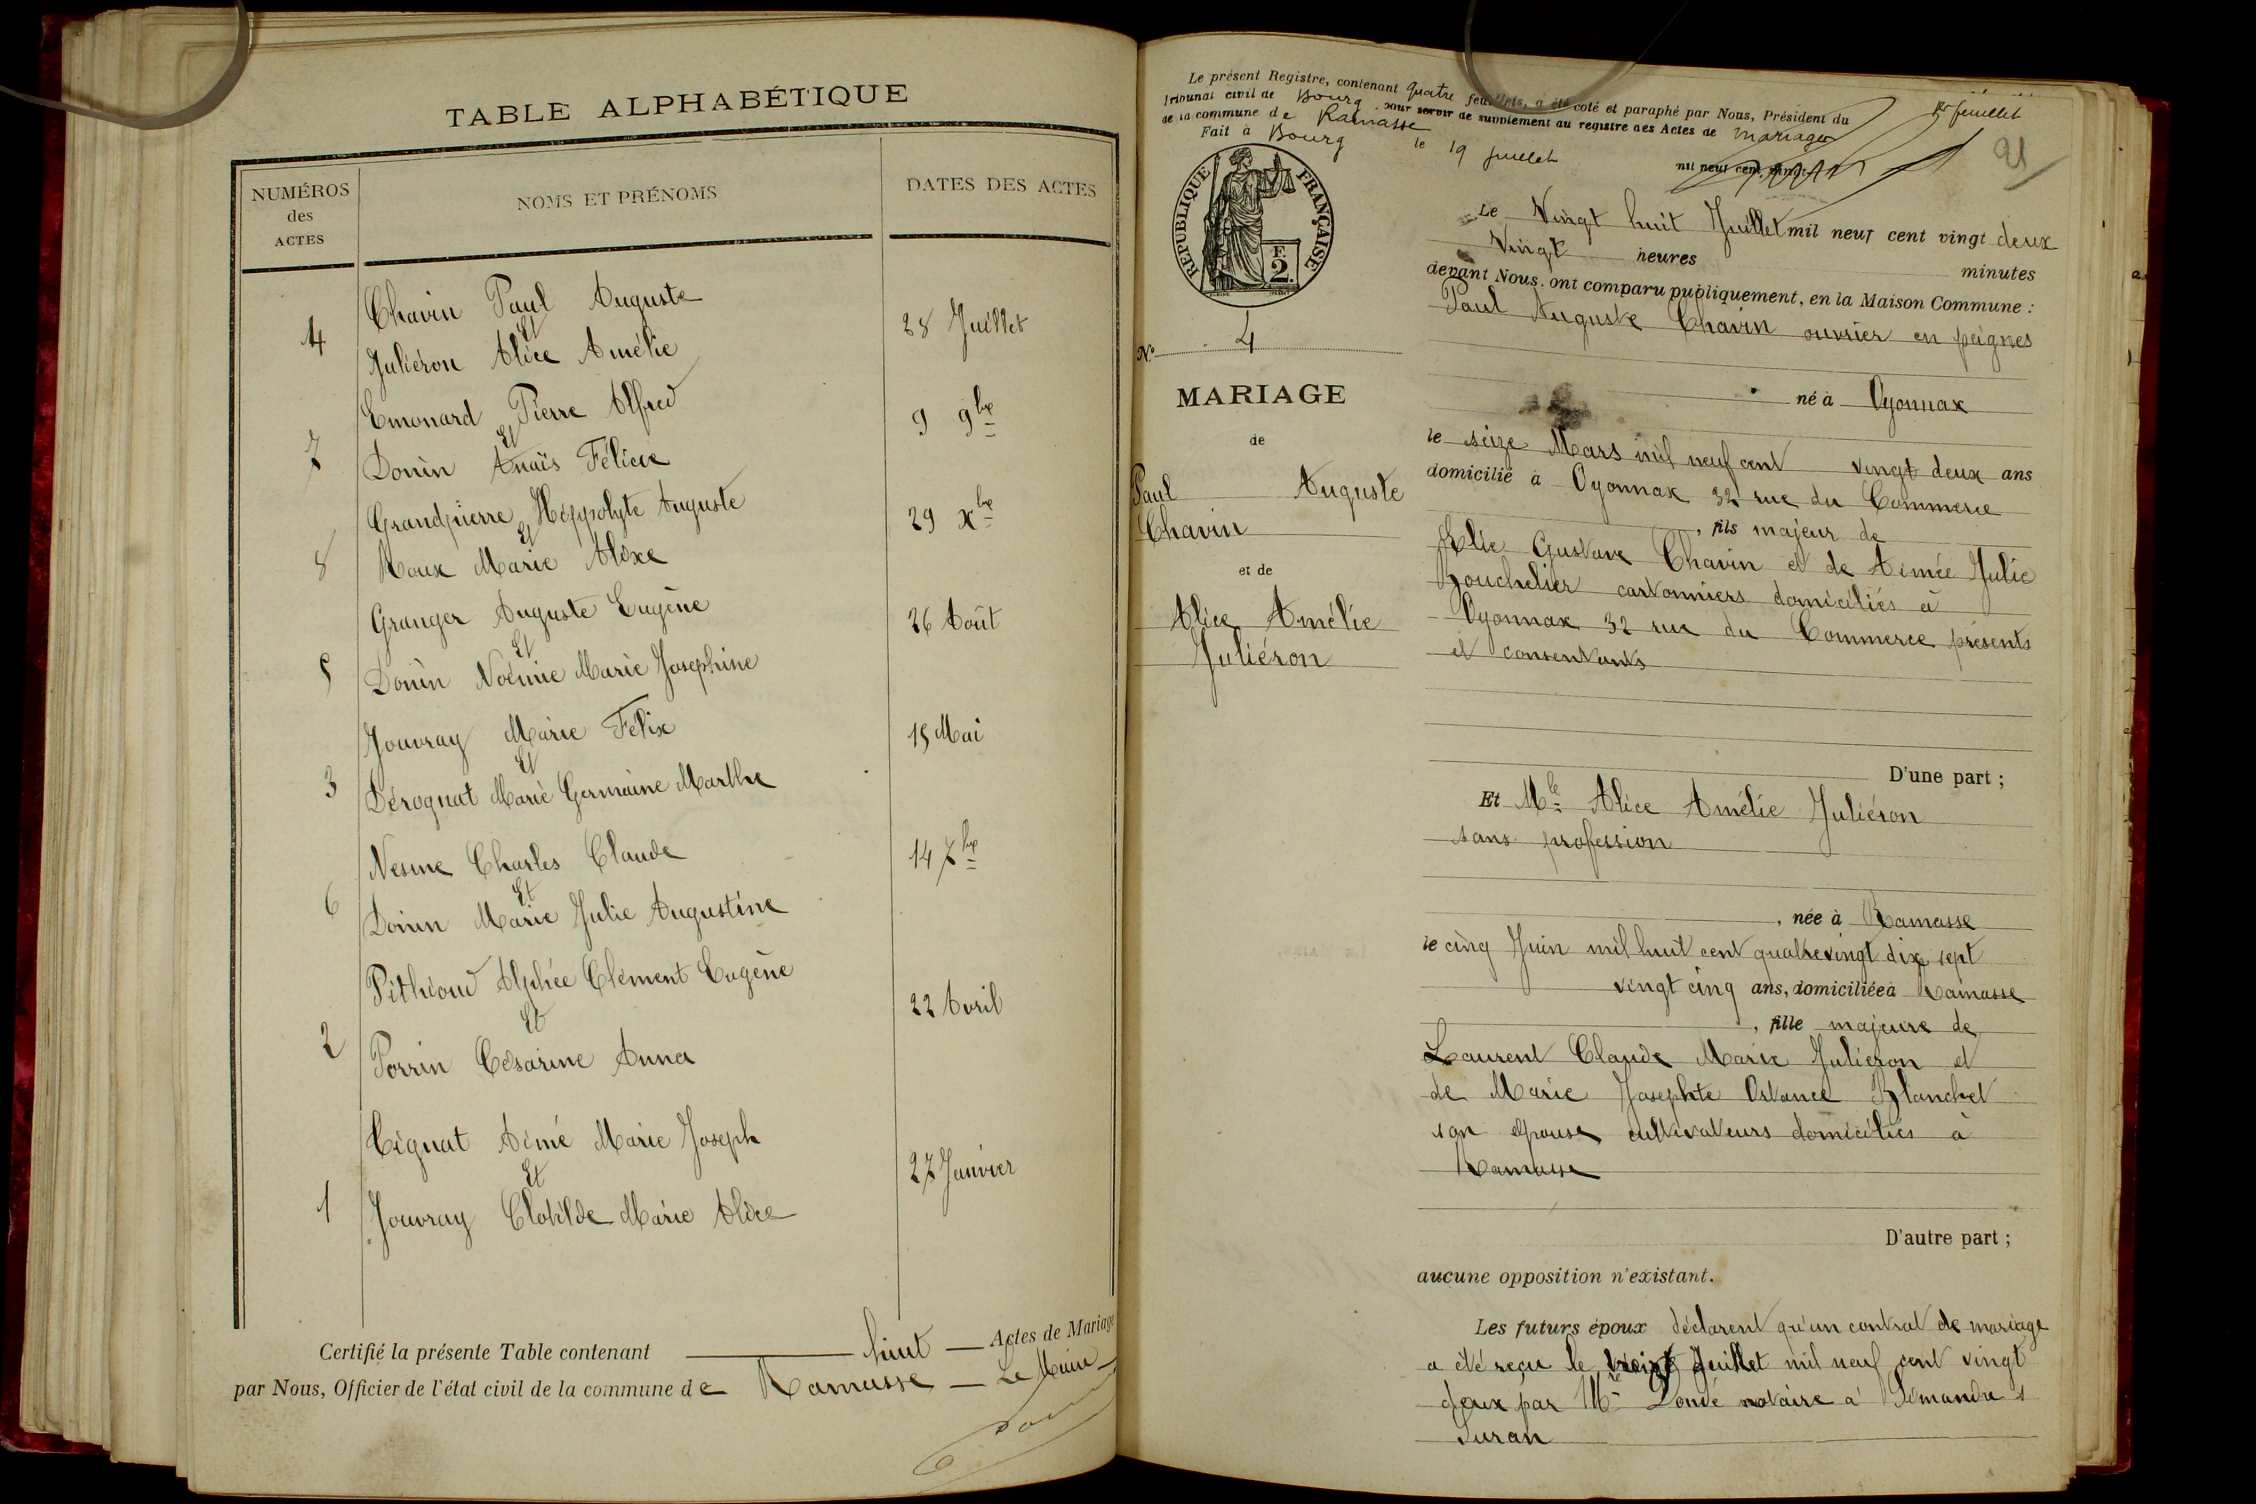 TABLE ALPHABÉTIQUE
NUMÉROS
des
ACTES
NOMS ET PRÉNOMS
DATES DES ACTES
Chavin Paul Auguste
4 Et 28 Juillet
Juliéron Alice Amélie
Emonard Pierre Alfred
7 Et 9 9bre
Donin Anaïs Félicie
Grandpierre Hippolyte Auguste
8 Et 29 xbre
Roux Marie Alixe
Granger Auguste Eugène
5 Et 26 Août
Donin Noémie Marie Josephine
Jouvray Marie Félix
3 Et 15 Mai
Dérognat Marie Germaine Marthe
Nesme Charles Claude
6 Et 14 7bre
Donin Marie Julie Augustine
Pithioud Alphée Clément Eugène
2 Et 22 Avril
Perrin Césarine Anna
Tignat Aimé Marie Joseph
1 Et 27 Janvier
Jouvray Clotilde Marie Alice
Certifié la présente Table contenant huit Actes de Mariage
par Nous, Officier de l'état civil de la commune de Ramasse Le Maire
Le présent Registre, contenant quatre feuillets, a été coté et paraphé par Nous, Président du
Tribunal civil de Bourg pour servir de supplément au registre des Actes de mariages
de la commune de Ramasse
Fait à Bourg le 19 Juillet mil neuf cent vingt
1er feuillet
21
RÉPUBLIQUE FRANÇAISE
F.
2.
No 4
MARIAGE
de
Paul Auguste
Chavin
et de
Alice Amélie
Juliéron
Le Vingt huit Juillet mil neuf cent vingt deux
Vingt heures minutes
devant Nous, ont comparu publiquement, en la Maison Commune :
Paul Auguste Chavin ouvrier en peignes
né à Oyonnax
le seize Mars mil neuf cent vingt deux ans
domicilié à Oyonnax 32 rue du Commerce
, fils majeur de
Elie Gustave Chavin et de Aimée Julie
Bouchelier cartonniers domiciliés à
Oyonnax 32 rue du Commerce présents
et consentants
D'une part ;
Et Mlle Alice Amélie Juliéron
sans profession
, née à Ramasse
le cinq Juin mil huit cent quatrevingt dix sept
vingt cinq ans, domiciliée à Ramasse
, fille majeure de
Laurent Claude Marie Juliéron et
de Marie Josephte Ortance Blanchet
son épouse cultivateurs domiciliés à
Ramasse
D'autre part ;
aucune opposition n'existant.
Les futurs époux déclarent qu'un contrat de mariage
a été reçu le Juillet mil neuf cent vingt
deux par Me Londe notaire à Simandre s
Suran